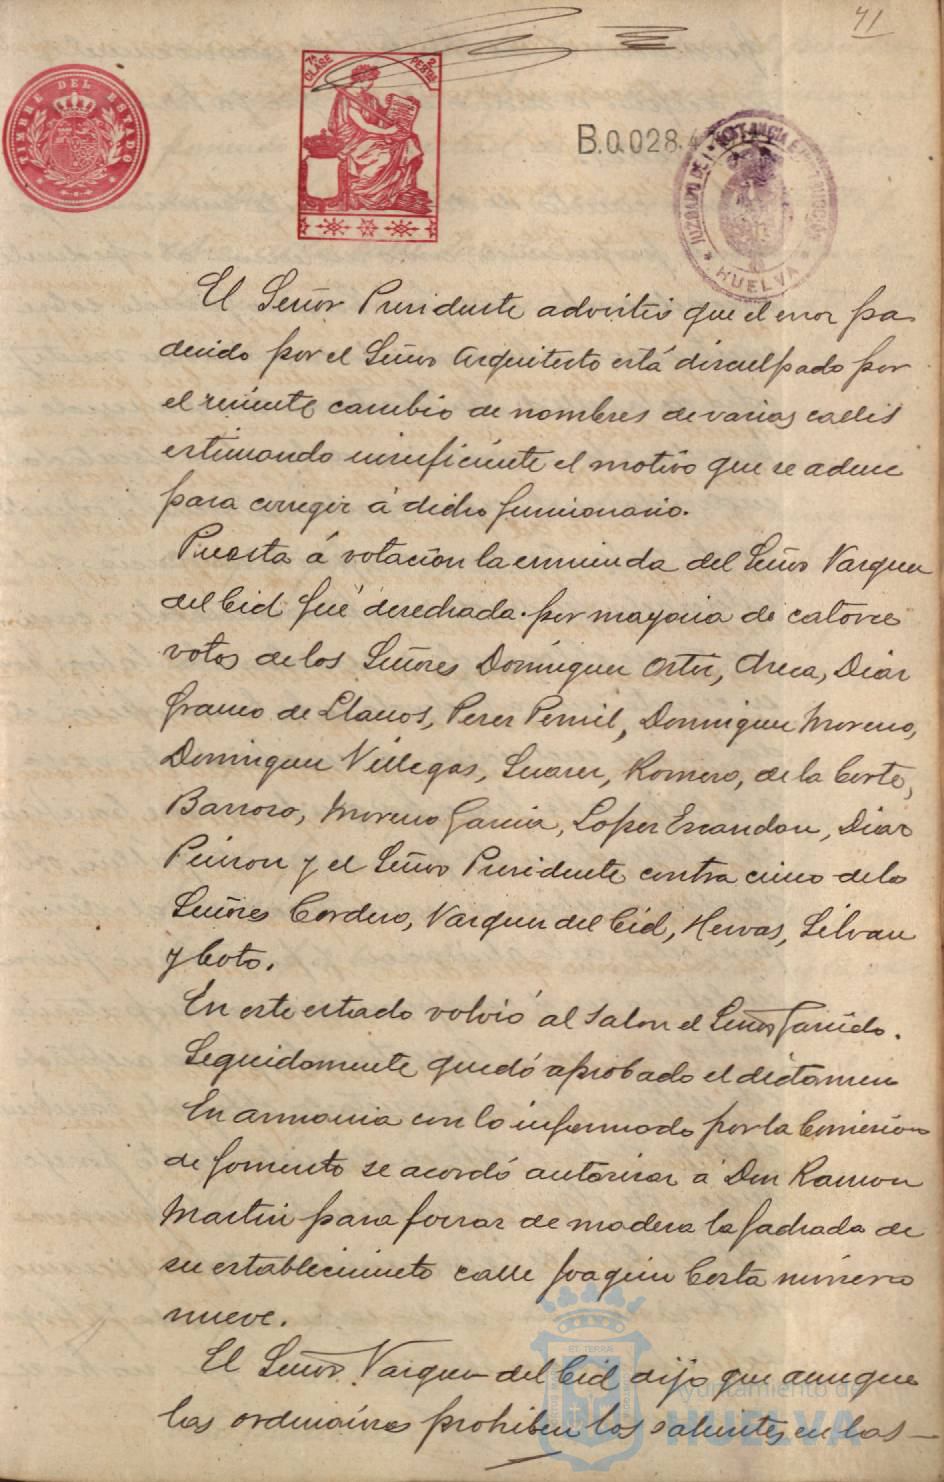 41
TIMBRE DEL ESTADO
7ª CLASE
2 PESETAS
B.0.028.
JUZGADO DE 1ª INSTANCIA E INSTRUCCIÓN
HUELVA
El Señor Presidente advirtió que el error pa
decido por el Señor Arquitecto está disculpado por
el reciente cambio de nombres de varias calles
estimando insuficiente el motivo que se aduce
para corregir á dicho funcionario.
Puesta á votación la enmienda del Señor Vazquez
del Cid fué desechada por mayoria de catorce
votos de los Señores Dominguez Ortiz, Checa, Diaz
Franco de Llanos, Perez Pernil, Dominguez Moreno,
Dominguez Villegas, Suarez, Romero, de la Corte,
Barroso, Moreno Garcia, Lopez Escandon, Diaz
y el Señor Presidente contra cinco de lo
Señores Cordero, Vazquez del Cid, Hervas, Silvan
y Coto.
En este estado volvió al Salon el Señor Garrido.
Seguidamente quedó aprobado el dictamen
En armonia con lo informado por la Comision
de fomento se acordó autorizar á Don Ramon
Martin para forrar de madera la fachada de
su establecimiento calle Joaquin Costa número
nueve.
El Señor Vazquez del Cid dijo que aunque
las ordenanzas prohiben los salientes en las
Ayuntamiento de
HUELVA